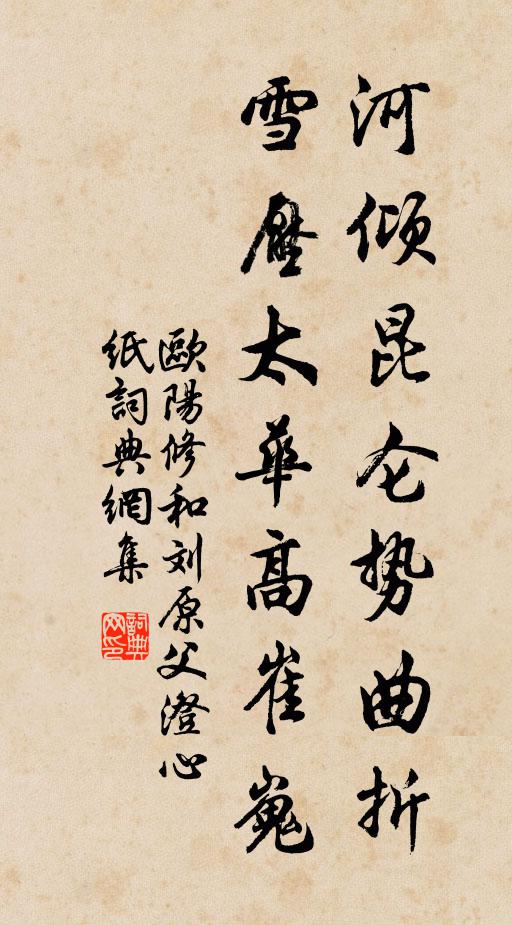 河倾昆仑势曲折
雪壓太華高崔嵬
歐陽修和刘原父澄心
紙詞典網集
詞典网印